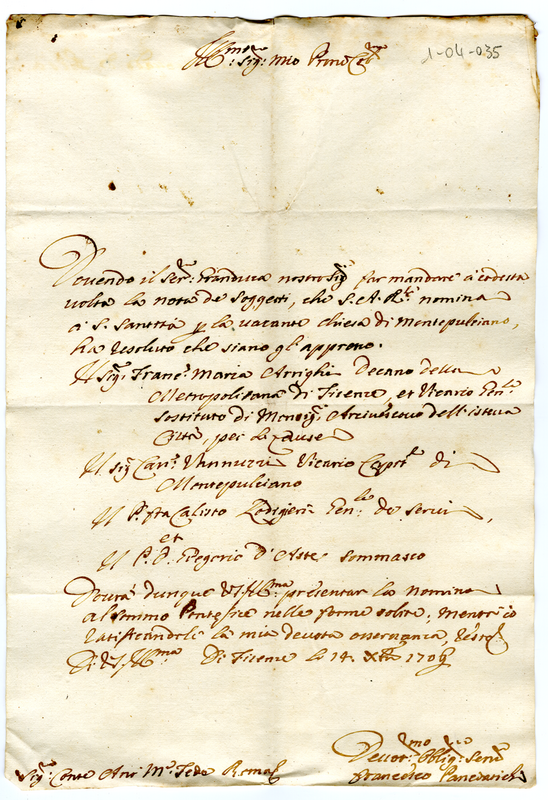 Ill.mo Sig: mio Prone Col.mo
1-04-035
Dovendo il Ser: Granduca nostro Sig.re far mandare à codesta
volta la nota de Soggetti, che S. A. R.le nomina
à S. Santità p la vacante chiesa di Montepulciano,
ha resoluto che siano gl'appreso.
Il Sig: Franc.o Maria Arrighi Decano della
Metropolitana di Firenze, et Vicario Gen.le
Sostituto di Monsig.r Arcivescovo dell'istessa
Città, per le Cause
Il Sig Can.co Vannuzzi Vicario Cap.re di
Montepulciano
Il P. fra Calisto Lodigieri Gen.le de Servi,
et
Il P. D. Gregorio D'Aste Sommasco
Dovrà dunque V.S. Ill.ma presentar la nomina
al Sommo Pontefice nelle forme solite, mentr'io
ratificandole la mia devota osservanza, resto
Di V.S. Ill.ma Di Firenze li 14. Xbre
Devot.mo Oblig: Serv.re
Francesco Panciatichi
Sig: Conte Ant: M.a Fede Roma